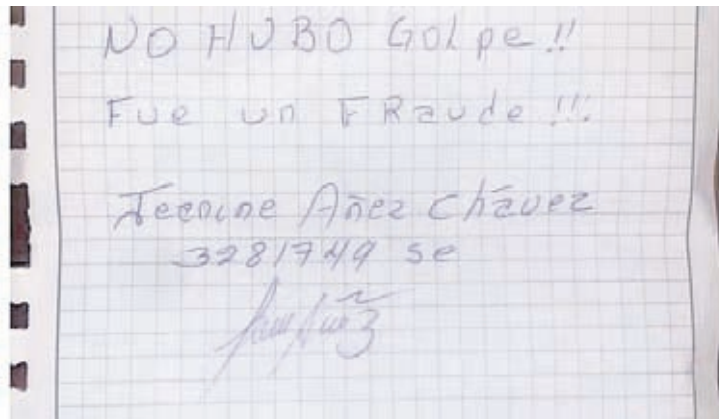 NO HUBO GOLpe!!
Fue un FRaude!!!
Jeanine Añez Chávez
3281749 Se